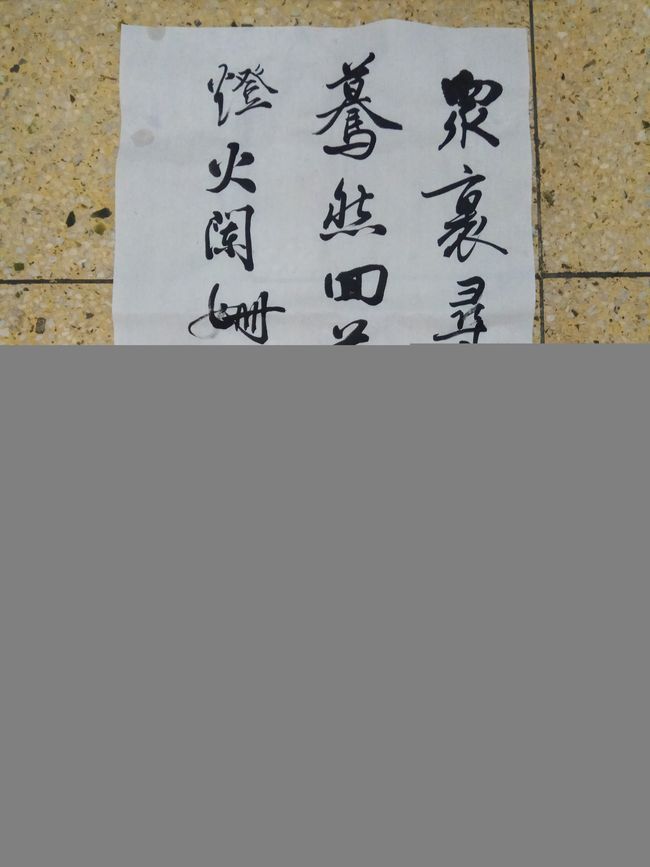 眾裏尋
驀然回
燈火闌珊